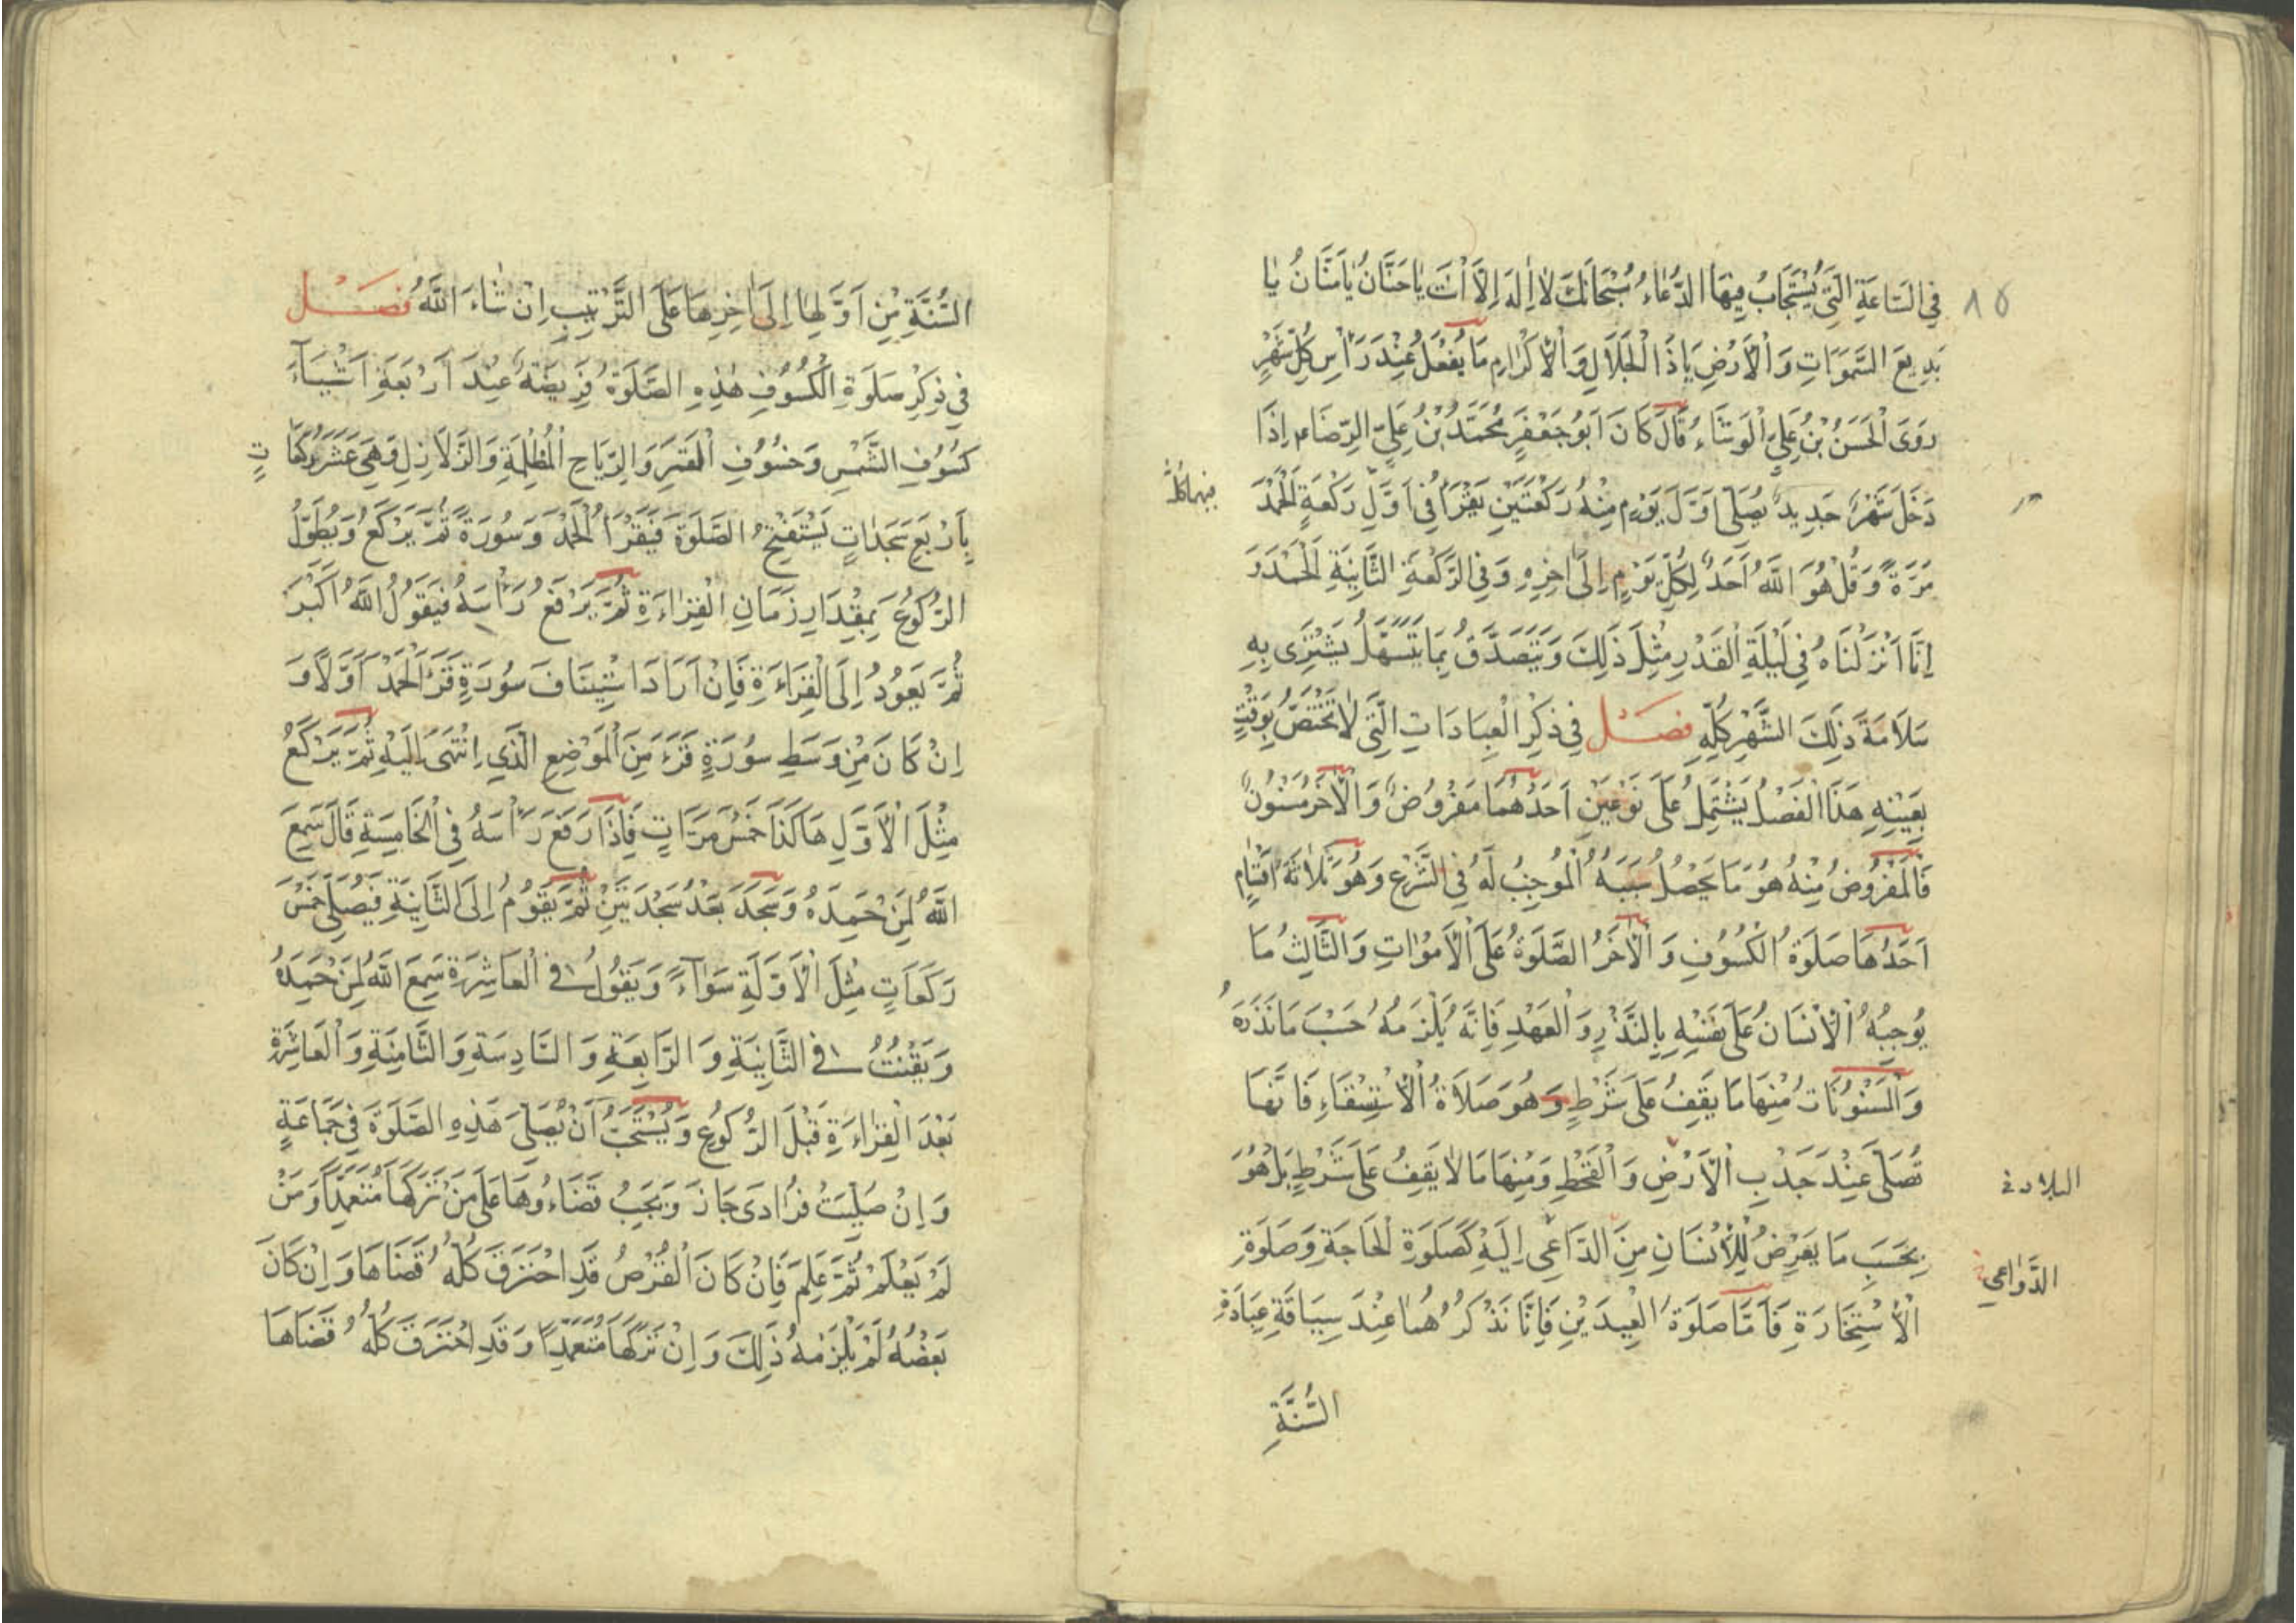 فِي السَّاعَةِ الَّتِي يُسْتَجَابُ فِيهَا الدُّعَاءُ سُبْحَانَكَ لَا إِلَهَ إِلَّا أَنْتَ يَا حَنَّانُ يَا مَنَّانُ يَا
٨٥
بَدِيعَ السَّمَوَاتِ وَالْأَرْضِ يَا ذَا الْجَلَالِ وَالْإِكْرَامِ مَا يُفْعَلُ عِنْدَ رَأْسِ كُلِّ شَهْرٍ
رَوَى الْحَسَنُ بْنُ عَلِيٍّ الْوَشَّاءُ قَالَ كَانَ أَبُو جَعْفَرٍ مُحَمَّدُ بْنُ عَلِيٍّ الرِّضَا م إِذَا
دَخَلَ شَهْرٌ جَدِيدٌ يُصَلِّي أَوَّلَ يَوْمٍ مِنْهُ رَكْعَتَيْنِ يَقْرَأُ فِي أَوَّلِ رَكْعَةٍ الْحَمْدَ
مَرَّةً وَقُلْ هُوَ اللَّهُ أَحَدٌ لِكُلِّ يَوْمٍ إِلَى آخِرِهِ وَفِي الرَّكْعَةِ الثَّانِيَةِ الْحَمْدَ وَ
إِنَّا أَنْزَلْنَاهُ فِي لَيْلَةِ الْقَدْرِ مِثْلَ ذَلِكَ وَيَتَصَدَّقُ بِمَا يَتَسَهَّلُ يَشْتَرِي بِهِ
سَلَامَةَ ذَلِكَ الشَّهْرِ كُلِّهِ فَصْلٌ فِي ذِكْرِ الْعِبَادَاتِ الَّتِي لَا تَخْتَصُّ بِوَقْتٍ
بِعَيْنِهِ هَذَا الْفَصْلُ يَشْتَمِلُ عَلَى نَوْعَيْنِ أَحَدُهُمَا مَفْرُوضٌ وَالْآخَرُ مَسْنُونٌ
فَالْمَفْرُوضُ مِنْهُ هُوَ مَا يَحْصُلُ سَبَبُهُ الْمُوجِبُ لَهُ فِي الشَّرْعِ وَهُوَ ثَلَاثَةُ أَقْسَامٍ
أَحَدُهَا صَلَوةُ الْكُسُوفِ وَالْآخَرُ الصَّلَوةُ عَلَى الْأَمْوَاتِ وَالثَّالِثُ مَا
يُوجِبُهُ الْإِنْسَانُ عَلَى نَفْسِهِ بِالنَّذْرِ وَالْعَهْدِ فَإِنَّهُ يَلْزَمُهُ حَسَبَ مَا نَذَرَهُ
وَالْمَسْنُونَاتُ مِنْهَا مَا يَقِفُ عَلَى شَرْطٍ وَهُوَ صَلَاةُ الْإِسْتِسْقَاءِ فَإِنَّهَا
تُصَلَّى عِنْدَ جَدْبِ الْأَرْضِ وَالْقَحْطِ وَمِنْهَا مَا لَا يَقِفُ عَلَى شَرْطٍ بَلْ هُوَ
البلاد
بِحَسَبِ مَا يَعْرِضُ لِلْإِنْسَانِ مِنَ الدَّاعِي إِلَيْهِ كَصَلَوةِ الْحَاجَةِ وَصَلَوةِ
الدَّوَاعِي
الْإِسْتِخَارَةِ فَأَمَّا صَلَوةُ الْعِيدَيْنِ فَإِنَّا نَذْكُرُهُمَا عِنْدَ سِيَاقَةِ عِبَادَةِ
السَّنَةِ
السَّنَةِ مِنْ أَوَّلِهَا إِلَى آخِرِهَا عَلَى التَّرْتِيبِ إِنْ شَاءَ اللَّهُ فَصْلٌ
فِي ذِكْرِ صَلَوةِ الْكُسُوفِ هَذِهِ الصَّلَوةُ فَرِيضَةٌ عِنْدَ أَرْبَعَةِ أَشْيَاءَ
كُسُوفِ الشَّمْسِ وَخُسُوفِ الْقَمَرِ وَالرِّيَاحِ الْمُظْلِمَةِ وَالزَّلَازِلِ وَهِيَ عَشَرُ رَكَعَاتٍ
بِأَرْبَعِ سَجَدَاتٍ يَسْتَفْتِحُ الصَّلَوةَ فَيَقْرَأُ الْحَمْدَ وَسُورَةً ثُمَّ يَرْكَعُ وَيُطَوِّلُ
الرُّكُوعَ بِمِقْدَارِ زَمَانِ الْقِرَاءَةِ ثُمَّ يَرْفَعُ رَأْسَهُ فَيَقُولُ اللَّهُ أَكْبَرَ
ثُمَّ يَعُودُ إِلَى الْقِرَاءَةِ فَإِنْ أَرَادَ اسْتِينَافَ سُورَةٍ قَرَأَ الْحَمْدَ أَوَّلًا وَ
إِنْ كَانَ مِنْ وَسَطِ سُورَةٍ قَرَءَ مِنَ الْمَوْضِعِ الَّذِي انْتَهَى إِلَيْهِ ثُمَّ يَرْكَعُ
مِثْلَ الْأَوَّلِ هَاكَذَا خَمْسَ مَرَّاتٍ فَإِذَا رَفَعَ رَأْسَهُ فِي الْخَامِسَةِ قَالَ سَمِعَ
اللَّهُ لِمَنْ حَمِدَهُ وَسَجَدَ بَعْدُ سَجْدَتَيْنِ ثُمَّ يَقُومُ إِلَى الثَّانِيَةِ فَيُصَلِّي خَمْسَ
رَكَعَاتٍ مِثْلَ الْأَوَّلَةِ سَوَآءً وَيَقُولُ فِي الْعَاشِرَةِ سَمِعَ اللَّهُ لِمَنْ حَمِدَهُ
وَيَقْنُتُ فِي الثَّانِيَةِ وَالرَّابِعَةِ وَالسَّادِسَةِ وَالثَّامِنَةِ وَالْعَاشِرَةِ
بَعْدَ الْقِرَاءَةِ قَبْلَ الرُّكُوعِ وَيُسْتَحَبُّ أَنْ يُصَلَّى هَذِهِ الصَّلَوةَ فِي جَمَاعَةٍ
وَإِنْ صُلِّيَتْ فُرَادَى جَازَ وَيَجِبُ قَضَاءُهَا عَلَى مَنْ تَرَكَهَا مُتَعَمِّدًا وَمَنْ
لَمْ يَعْلَمْ ثُمَّ عَلِمَ فَإِنْ كَانَ الْقُرْصُ قَدِ احْتَرَقَ كُلُّهُ قَضَاهَا وَإِنْ كَانَ
بَعْضُهُ لَمْ يَلْزَمْهُ ذَلِكَ وَإِنْ تَرَكَهَا مُتَعَمِّدًا وَقَدِ احْتَرَقَ كُلُّهُ قَضَاهَا